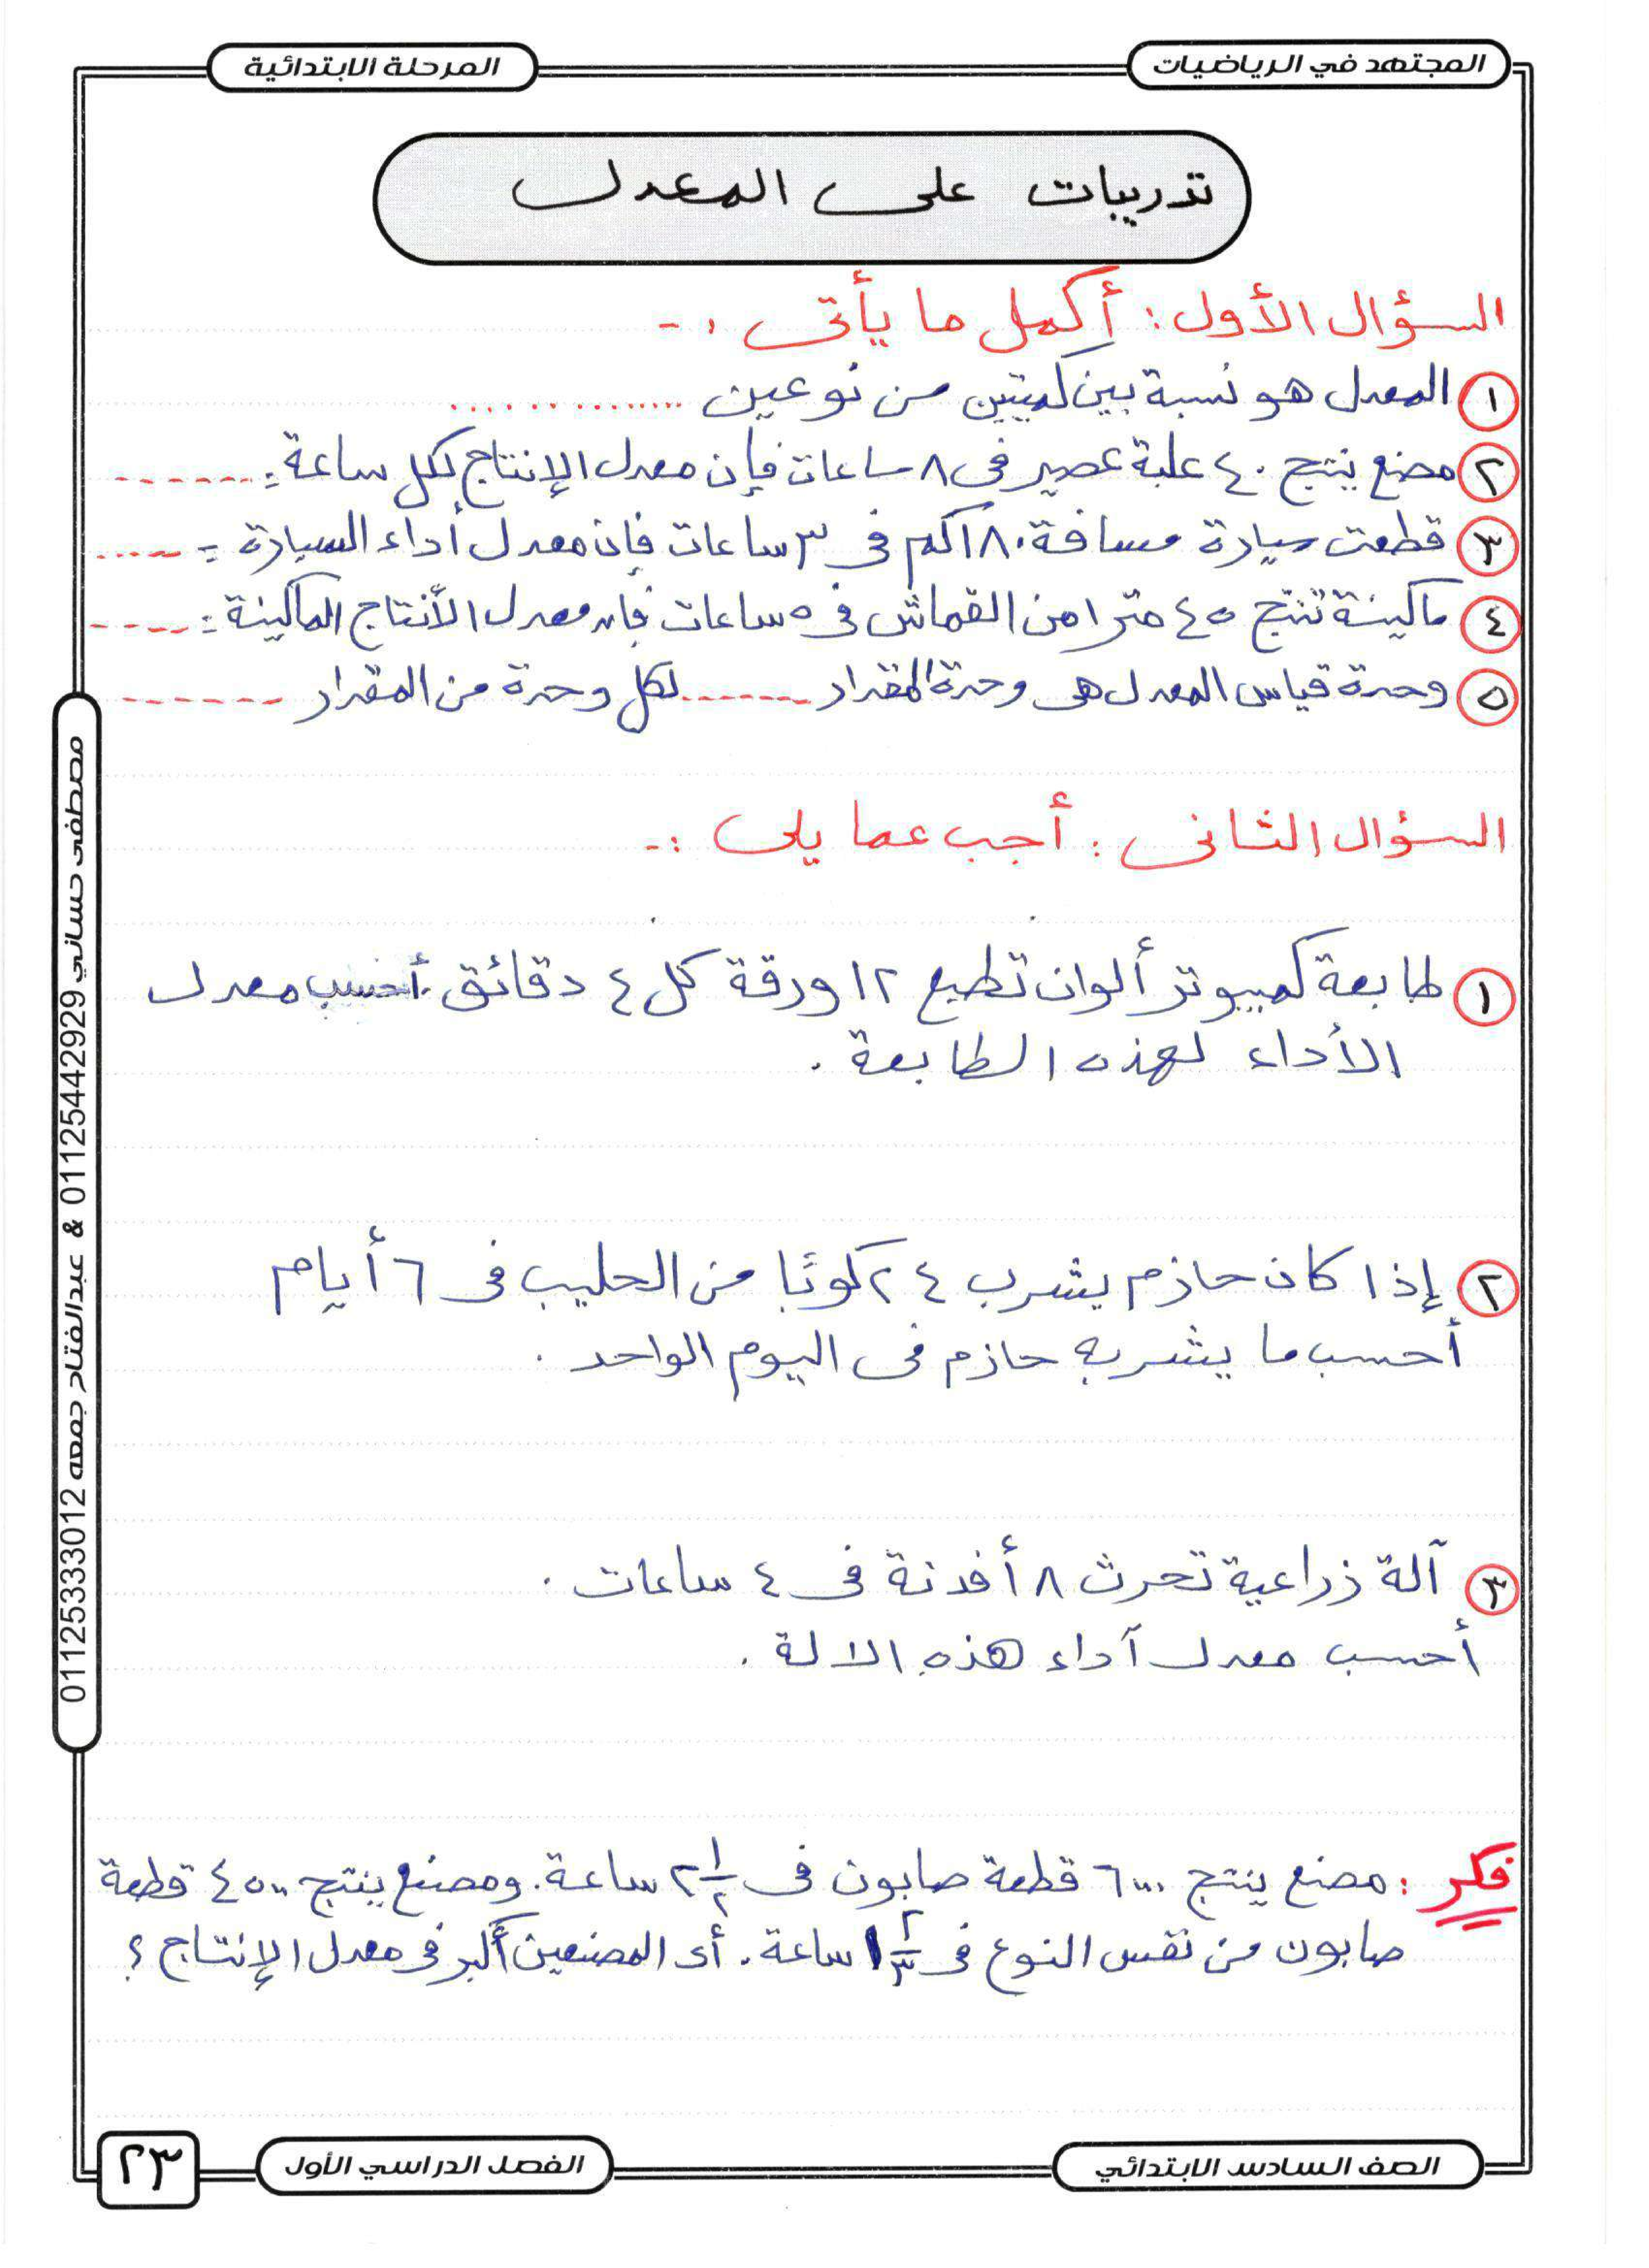 المجتهد في الرياضيات
المرحلة الابتدائية
تدريبات على المعدل
السؤال الأول : أكمل ما يأتى :-
١ المعدل هو نسبة بين كميتين من نوعين ..............
٢ مصنع ينتج ٤٠ علبة عصير فى ٨ ساعات فإن معدل الإنتاج لكل ساعة = -------
٣ قطعت سيارة مسافة ١٨٠ كم فى ٣ ساعات فإن معدل أداء السيارة = -----
٤ ماكينة تنتج ٤٥ مترا من القماش فى ٥ ساعات فإن معدل الأنتاج الماكينة = -----
٥ وحدة قياس المعدل هى وحدة المقدار ------- لكل وحدة من المقدار -------
السؤال الثانى : أجب عما يلى :-
١ طابعة كمبيوتر ألوان تطبع ١٢ ورقة كل ٤ دقائق . أحسب معدل
الأداء لهذه الطابعة .
٢ إذا كان حازم يشرب ٢٤ كوبًا من الحليب فى ٦ أيام
أحسب ما يشربه حازم فى اليوم الواحد .
٣ آلة زراعية تحرث ٨ أفدنة فى ٤ ساعات .
أحسب معدل آداء هذه الالة .
فكر : مصنع ينتج ٦٠٠٠ قطعة صابون فى ٢ ١/٢ ساعة . ومصنع ينتج ٤٥٠٠ قطعة
صابون من نفس النوع فى ١ ٢/٣ ساعة . أى المصنعين أكبر فى معدل الإنتاج ؟
مصطفى حساني 01125442929 & عبدالفتاح جمعه 01125333012
الصف السادس الابتدائي
الفصل الدراسي الأول
٢٣